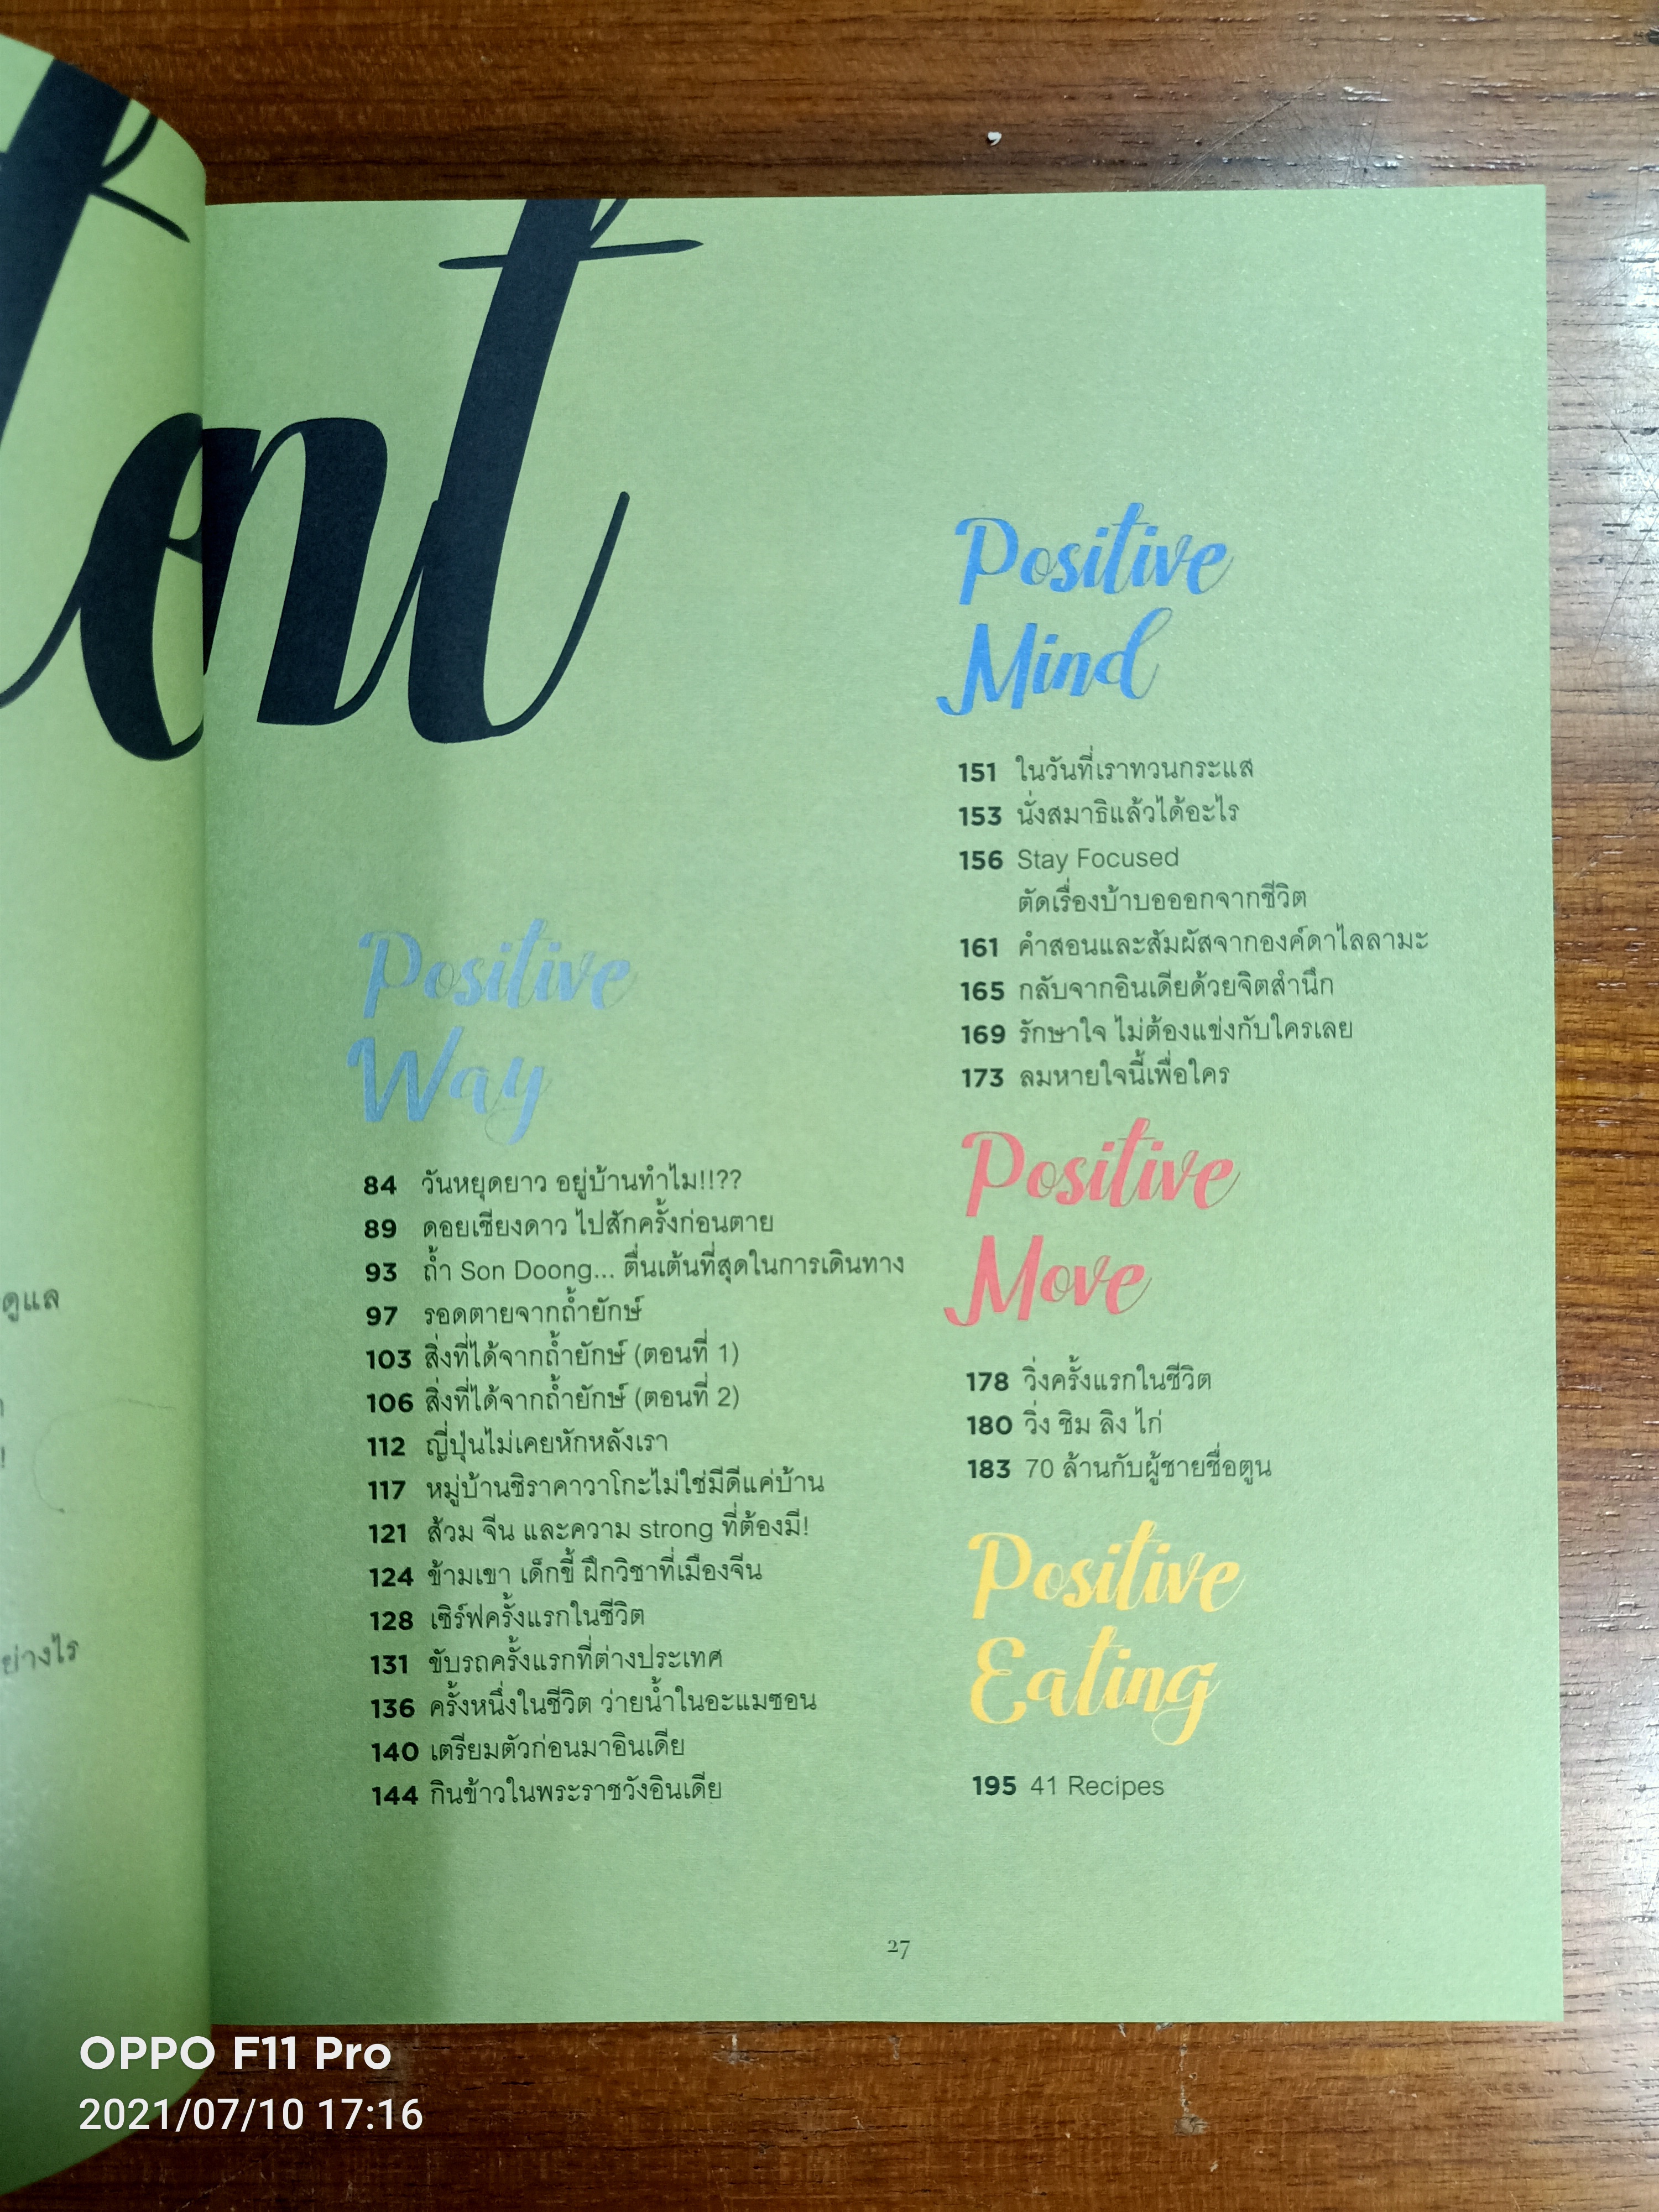 ent
ดูแล
!
ย่างไร
Positive
Way
84 วันหยุดยาว อยู่บ้านทำไม!!??
89 ดอยเชียงดาว ไปสักครั้งก่อนตาย
93 ถ้ำ Son Doong... ตื่นเต้นที่สุดในการเดินทาง
97 รอดตายจากถ้ำยักษ์
103 สิ่งที่ได้จากถ้ำยักษ์ (ตอนที่ 1)
106 สิ่งที่ได้จากถ้ำยักษ์ (ตอนที่ 2)
112 ญี่ปุ่นไม่เคยหักหลังเรา
117 หมู่บ้านชิราคาวาโกะไม่ใช่มีดีแค่บ้าน
121 ส้วม จีน และความ strong ที่ต้องมี!
124 ข้ามเขา เด็กขี้ ฝึกวิชาที่เมืองจีน
128 เซิร์ฟครั้งแรกในชีวิต
131 ขับรถครั้งแรกที่ต่างประเทศ
136 ครั้งหนึ่งในชีวิต ว่ายน้ำในอะแมซอน
140 เตรียมตัวก่อนมาอินเดีย
144 กินข้าวในพระราชวังอินเดีย
Positive
Mind
151 ในวันที่เราทวนกระแส
153 นั่งสมาธิแล้วได้อะไร
156 Stay Focused
ตัดเรื่องบ้าบอออกจากชีวิต
161 คำสอนและสัมผัสจากองค์ดาไลลามะ
165 กลับจากอินเดียด้วยจิตสำนึก
169 รักษาใจ ไม่ต้องแข่งกับใครเลย
173 ลมหายใจนี้เพื่อใคร
Positive
Move
178 วิ่งครั้งแรกในชีวิต
180 วิ่ง ชิม ลิง ไก่
183 70 ล้านกับผู้ชายชื่อตูน
Positive
Eating
195 41 Recipes
27
OPPO F11 Pro
2021/07/10 17:16